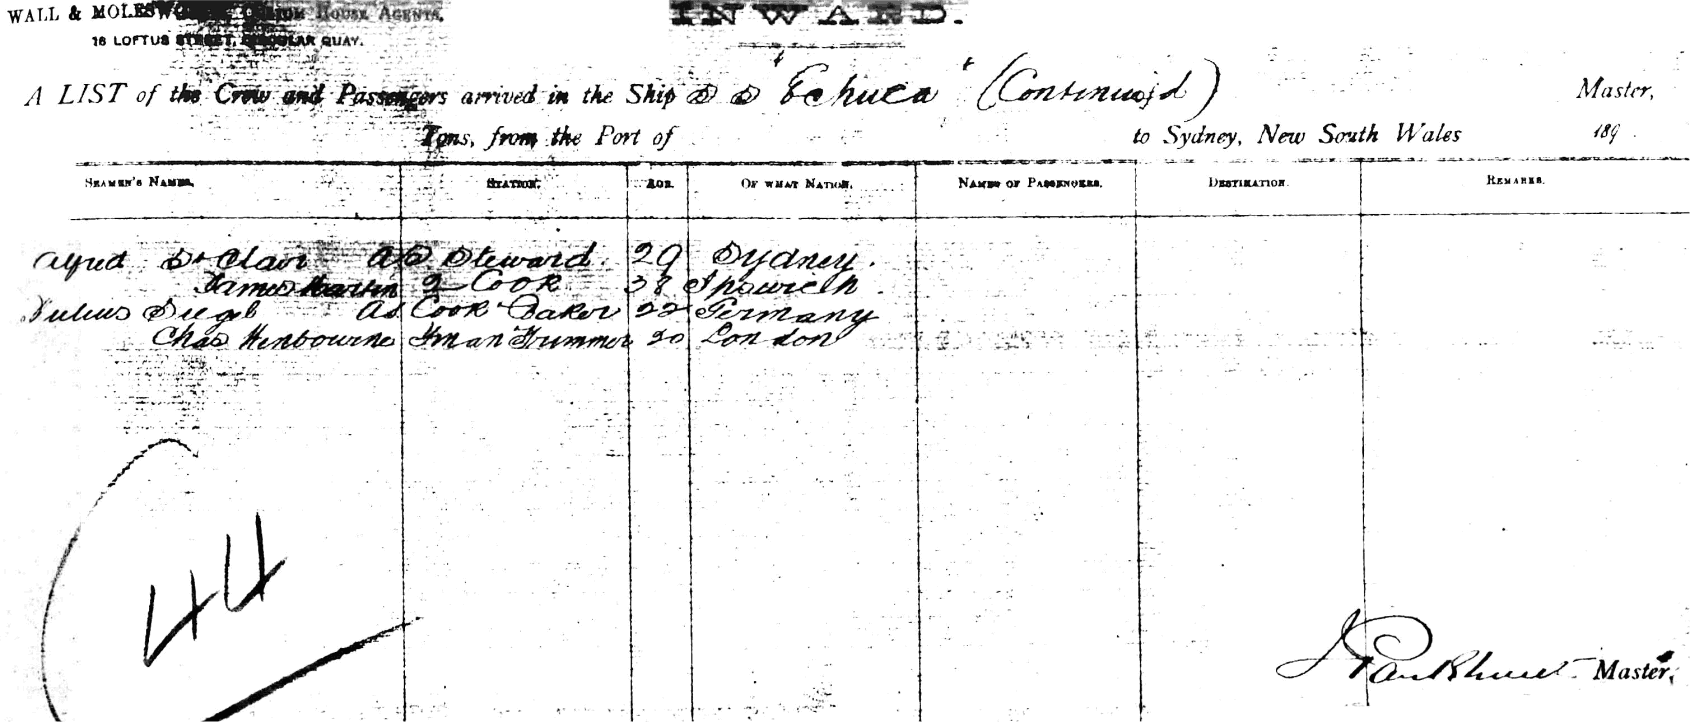 WALL & MOLESWORTH, CUSTOM HOUSE AGENTS,
16 LOFTUS STREET, CIRCULAR QUAY.
INWARD.
A LIST of the Crew and Passengers arrived in the Ship S S "Echuca" (Continued) Master,
Tons, from the Port of to Sydney, New South Wales 189
SEAMEN'S NAMES. STATION. AGE. OF WHAT NATION. NAMES OF PASSENGERS. DESTINATION. REMARKS.
Alfred St Clair As Steward 29 Sydney.
James Martin 2 Cook 38 Ipswich.
Julius Siegel As Cook Baker 22 Germany
Chas Henbourne Fman Trimmer 20 London
44
Master,